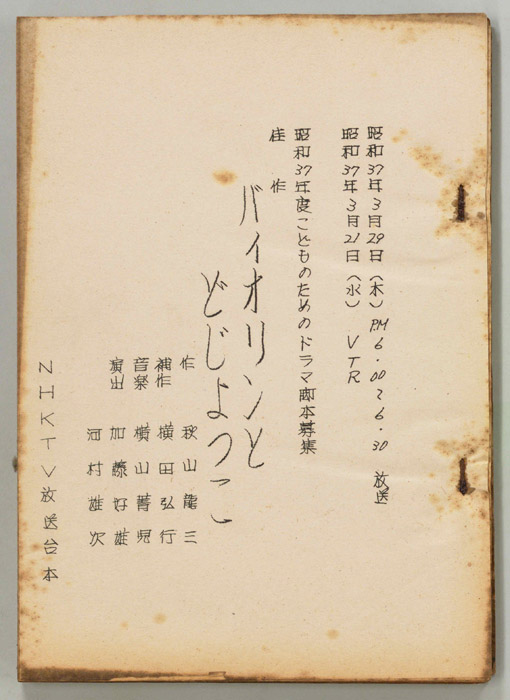 昭和37年3月29日（木）PM6.00～6.30 放送
昭和37年3月21日（水） VTR
昭和37年度こどものためのドラマ脚本募集
佳作
バイオリンと
どじょっこ
作 秋山龍三
補作 横田弘行
音楽 横山菁児
演出 加藤好雄
河村雄次
NHKTV放送台本